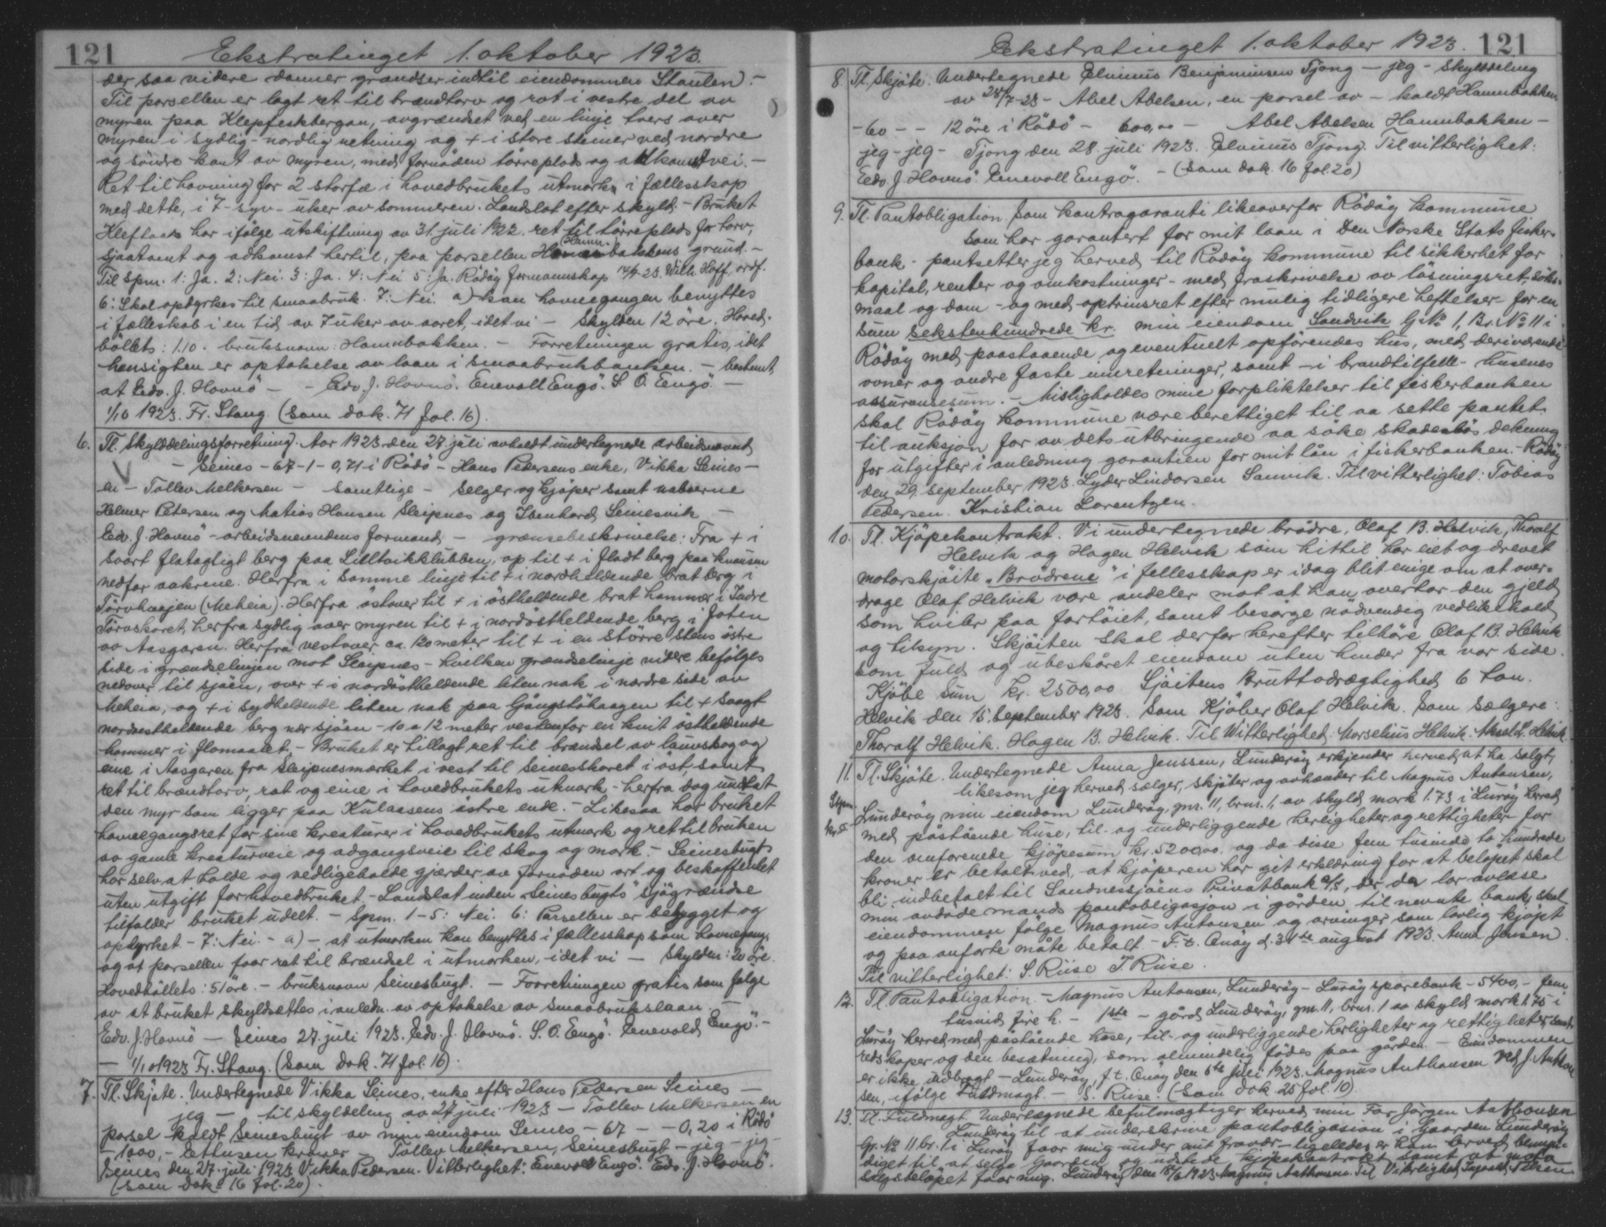 121 Ekstratinget 1. oktober 1923.
der saa videre danner grændser indtil eiendommen Staulen. -
Til parsellen er lagt ret til brændtorv og rot i vestre del av
myren paa Klepfeskbergan, avgrændset ved en linje tvers over
myren i sydlig-nordlig retning og + i store steiner ved nordre
og söndre kant av myren, med fornöden törreplads og adkomstvei. -
Ret til havning for 2 storfæ i hovedbrukets utmark i fællesskap
med dette, i 7 - syv - uker av sommeren. Landslot efter skyld. - Bruket
har ifölge utskiftning av 31. juli 1922. ret til törreplads for torv,
sjaatomt og adkomst hertil, paa parsellen Hamnbakkens grund. -
Til Spm. 1: Ja. 2: Nei. 3: Ja. 4: Nei 5: Ja. Rödöy formannskap 14/7 23. Wilh. Hoff, ordf.
6: Skal opdyrkes til smaabruk. 7: Nei. a) kan havnegangen benyttes
i fælleskab i en tid av 7 uker av aaret, idet vi - Skylden 12 öre. Hoved-
böllets: 1.10. bruksnavn: Hamnbakken. - Forretningen gratis, idet
hensigten er optakelse av laan i smaabrukbanken. - bestemt
at Edv. J. Hovnö - - Edv. J. Hovnö. Enevold Engö. S. O. Engö -
1/10 1923. Fr. Stang (Sam dok. 71 fol. 16).
6. Tl. Skylddelingsforretning. Aar 1923 den 27 juli avholdt undertegnede arbeidsmænd
- Seines - 67 - 1 - 0,71 i Rödö - Hans Petersens enke, Vikka Seines -
en - Tollev Melkersen - samtlige - selger og kjöper samt naboerne
Helmer Petersen og Matias Hansen Sleipnes og Isenhard Seinesvik -
Edv. J. Hovnö - arbeidsmendenes formand - grænsebeskrivelse: Fra + i
svart flatagtigt berg paa Lillevikklubben, op til + i fladt berg paa knausen
nedfor aakrene. Herfra i samme linje til + i nordheldende brat berg i
Törvhaugen (Meheia). Herfra östover til + i östheldende brat hammer i Indre
Törvskaret, herfra sydlig over myren til + i nordöstheldende berg i foten
av Aasgaren. Herfra vestover ca. 120 meter til + i en större stens östre
side i grændselinjen mot Sleipnes - hvilken grændselinje videre befölges
nedover til sjöen, over + i nordöstheldende liten nak i nordre side av
Meheia, og + i sydheldende liten nak paa Gangstöhaugen til + svagt
nordostheldende berg nær sjöen - 10 a 12 meter vestenfor en hvit östheldende
hammer i flomaalet. - Bruket er tillagt ret til brændsel av lauvskog og
eine i Aasgaren fra Sleipnesmærket i vest til Seinesskaret i öst, samt
ret til brændtorv, rot og eine i hovedbrukets utmark - herfra dog undtat
den myr som ligger paa Kulaasens östre ende. - Likesaa har bruket
havnegangsret for sine kreaturer i hovedbrukets utmark og ret til bruken
av gamle kreaturveie og adgangsveie til skog og mark. - Seinesbugt
har selv at holde og vedligeholde gjærder av fornöden art og beskaffenhet
uten utgift for hovedbruket. - Landslot inden "Seinesbugts" sjögrændse
tilfalder bruket udelt. - Spm. 1-5: Nei. 6: Parsellen er bebygget og
opdyrket - 7: Nei - a) - at utmarken kan benyttes i fællesskap som havnegang,
og at parsellen faar ret til brændsel i utmarken, idet vi - Skylden: 20 öre.
Hovedböllets: 51 öre. - bruksnavn Seinesbugt. - Forretningen gratis som fölge
av at bruket skyldsættes i anledn. av optakelse av smaabrukslaan -
Edv. J. Hovnö - Seines 27. juli 1923. Edv. J. Hovnö. S. O. Engö. Enevold Engö. -
- 1/10 1923 Fr. Stang. (Sam dok. 71 fol. 16).
7. Tl. Skjöte. Undertegnede Vikka Seines, enke efter Hans Petersen Seines -
jeg - til skyldeling av 27 juli 1923 - Tollev Melkersen en
parsel kaldt Seinesbugt av min eiendom Seines - 67 - - 0,20 i Rödö
- 1000,- Ettusen kroner - Tollev Melkersen, Seinesbugt - jeg - jeg -
Seines den 27. juli 1923 Vikka Pedersen. Vitterlighet: Enevold Engö. Edv. J. Hovnö.
(Sam dok. 16 fol. 20).
Ekstratinget 1. oktober 1923. 121
8. Tl. Skjöte. Undertegnede Elvinus Benjaminsen Tjong - jeg - skylddeling
av 28/7-23 - Abel Abelsen, en parsel av - kaldt Hamnbakken
- 60 - - 12 öre i Rödö - 600,00 - Abel Abelsen Hamnbakken -
jeg - jeg - Tjong den 28. juli 1923. Elvinus Tjong. Til vitterlighet:
Edv. J. Hovnö. Enevold Engö. - (Sam dok. 16 fol 20)
9. Tl. Pantobligation. Som kontragaranti likeoverfor Rödöy kommune
som har garantert for mit laan i Den Norske Stats fisker-
bank - pantsetter jeg herved til Rödöy kommune til sikkerhet for
kapital, renter og omkostninger - med fraskrivelse av lösningsret, söks-
maal og dom - og med optrinsret efter mulig tidligere heftelser - for en
sum sekstenhundrede kr. min eiendom Sandvik G.No 1, Br. No 11 i
Rödöy med paastaaende og eventuelt opförendes hus, med deriværende
ovner og andre faste innretninger, samt - i brandtilfelle - husenes
assuransesum. - Misligholdes mine forpliktelser til fiskerbanken
skal Rödöy kommune være berettiget til aa sette pantet
til auksjon for av dets utbringende aa söke skadeslös dekning
for utgifter i anledning garantien for mit lån i fiskerbanken. Rödöy
den 29. september 1923. Lyder Lindorsen Sanvik. Til vitterlighet: Tobias
Pedersen. Kristian Lorentzen.
10. Tl. Kjöpekontrakt. Vi undertegnede brödre, Olaf B. Helvik, Thoralf
Helvik og Hagen Helvik som hittil har eiet og drevet
motorskjöite "Brödrene" i fellesskap er idag blit enige om at over-
drage Olaf Helvik vore andeler mot at han overtar den gjeld
som hviler paa fartöiet, samt besörge nödvendig vedlikehold
og tilsyn. Skjöiten skal derfor herefter tilhöre Olaf B. Helvik
som fuld og ubeskåret eiendom uten hinder fra vor side.
Kjöbe sum Kr. 2500,00 Sjöitens Bruttodrægtighed 6 ton.
Helvik den 15. September 1923. Som Kjöber Olaf Helvik. Som Sælgere:
Thoralf Helvik. Hagen B. Helvik. Til Witterlighed: Morselius Helvik. Helvik
11. Tl. Skjöte. Undertegnede Anna Jenssen, Lunderöy erkjender herved, at ha solgt,
likesom jeg herved sælger, skjöter og avhænder til Magnus Antonsen,
Lunderöy min eiendom Lunderöy, gnr. 11, brnr. 1, av skyld mark 1.73 i Luröy herred
med påstående huse, til- og underliggende herligheter og rettigheter for
den omforenede kjöpesum kr. 5200,00. og da disse fem tusinde to hundrede
kroner er betalt ved, at kjöperen har git erklæring for at belöpet skal
bli indbetalt til Sandnessjöens Privatbank A/S, der da lar avlöse
min avdöde mands pantobligasjon i gården til nevnte bank, skal
eiendommen fölge Magnus Antonsen og arvinger som lovlig kjöpt
og paa anförte måte betalt. - F.t. Onöy d. 31te august 1923. Anna Jensen
Til vitterlighet: S. Riise J. Riise.
12. Tl. Pantobligation. - Magnus Antonsen, Lunderöy - Luröy sparebank - 5400,- fem
tusind fire h. - 1ste - gård Lunderöy, gnr. 11, brnr. 1 av skyld mark 1.75 i
Luröy herred med påstående huse, til- og underliggende herligheter og rettigheter samt
redskaper og den besætning, som almindelig födes paa gården. - Eiendommen
er ikke udbragt - Lunderöy, f.t. Onöy den 6te Juli 1923. Magnus Anthonsen ved J. Anthon
sen, ifölge fuldmagt. - S. Riise. (Sam dok 25 fol. 10).
13. Tl. Fuldmagt. Undertegnede befuldmægtiger herved min Far Jörgen Anthonsen
Lunderöy til at underskrive pantobligasion i Gaarden Lunderöy
Gr. No 11 br. 1 i Luröy foor mig under mit fravær - ligelledes er han herved bemyn-
diget til at selge gaarden og udstede kjöpekontrakt samt at mota
salgsbelöpet foor mig. Lunderöy den 18/6 1923 Magnus Anthonsen. Til Vitterlighed